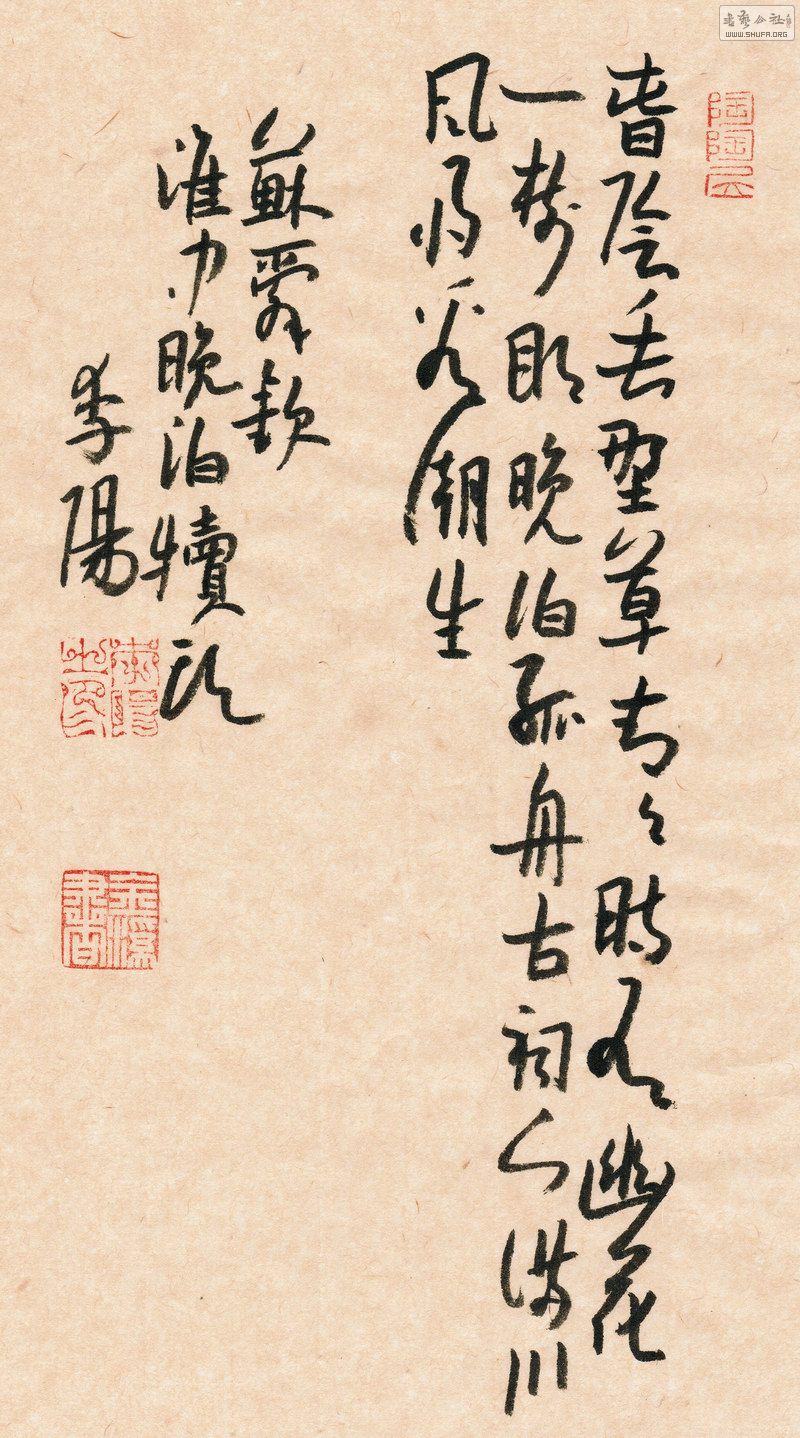 春陰垂野草青々時有幽花
一樹明晚泊孤舟古祠下満川
風雨看潮生
蘇舜欽
淮中晚泊犢頭
李陽
陶陶云
WWW.SHUFA.ORG